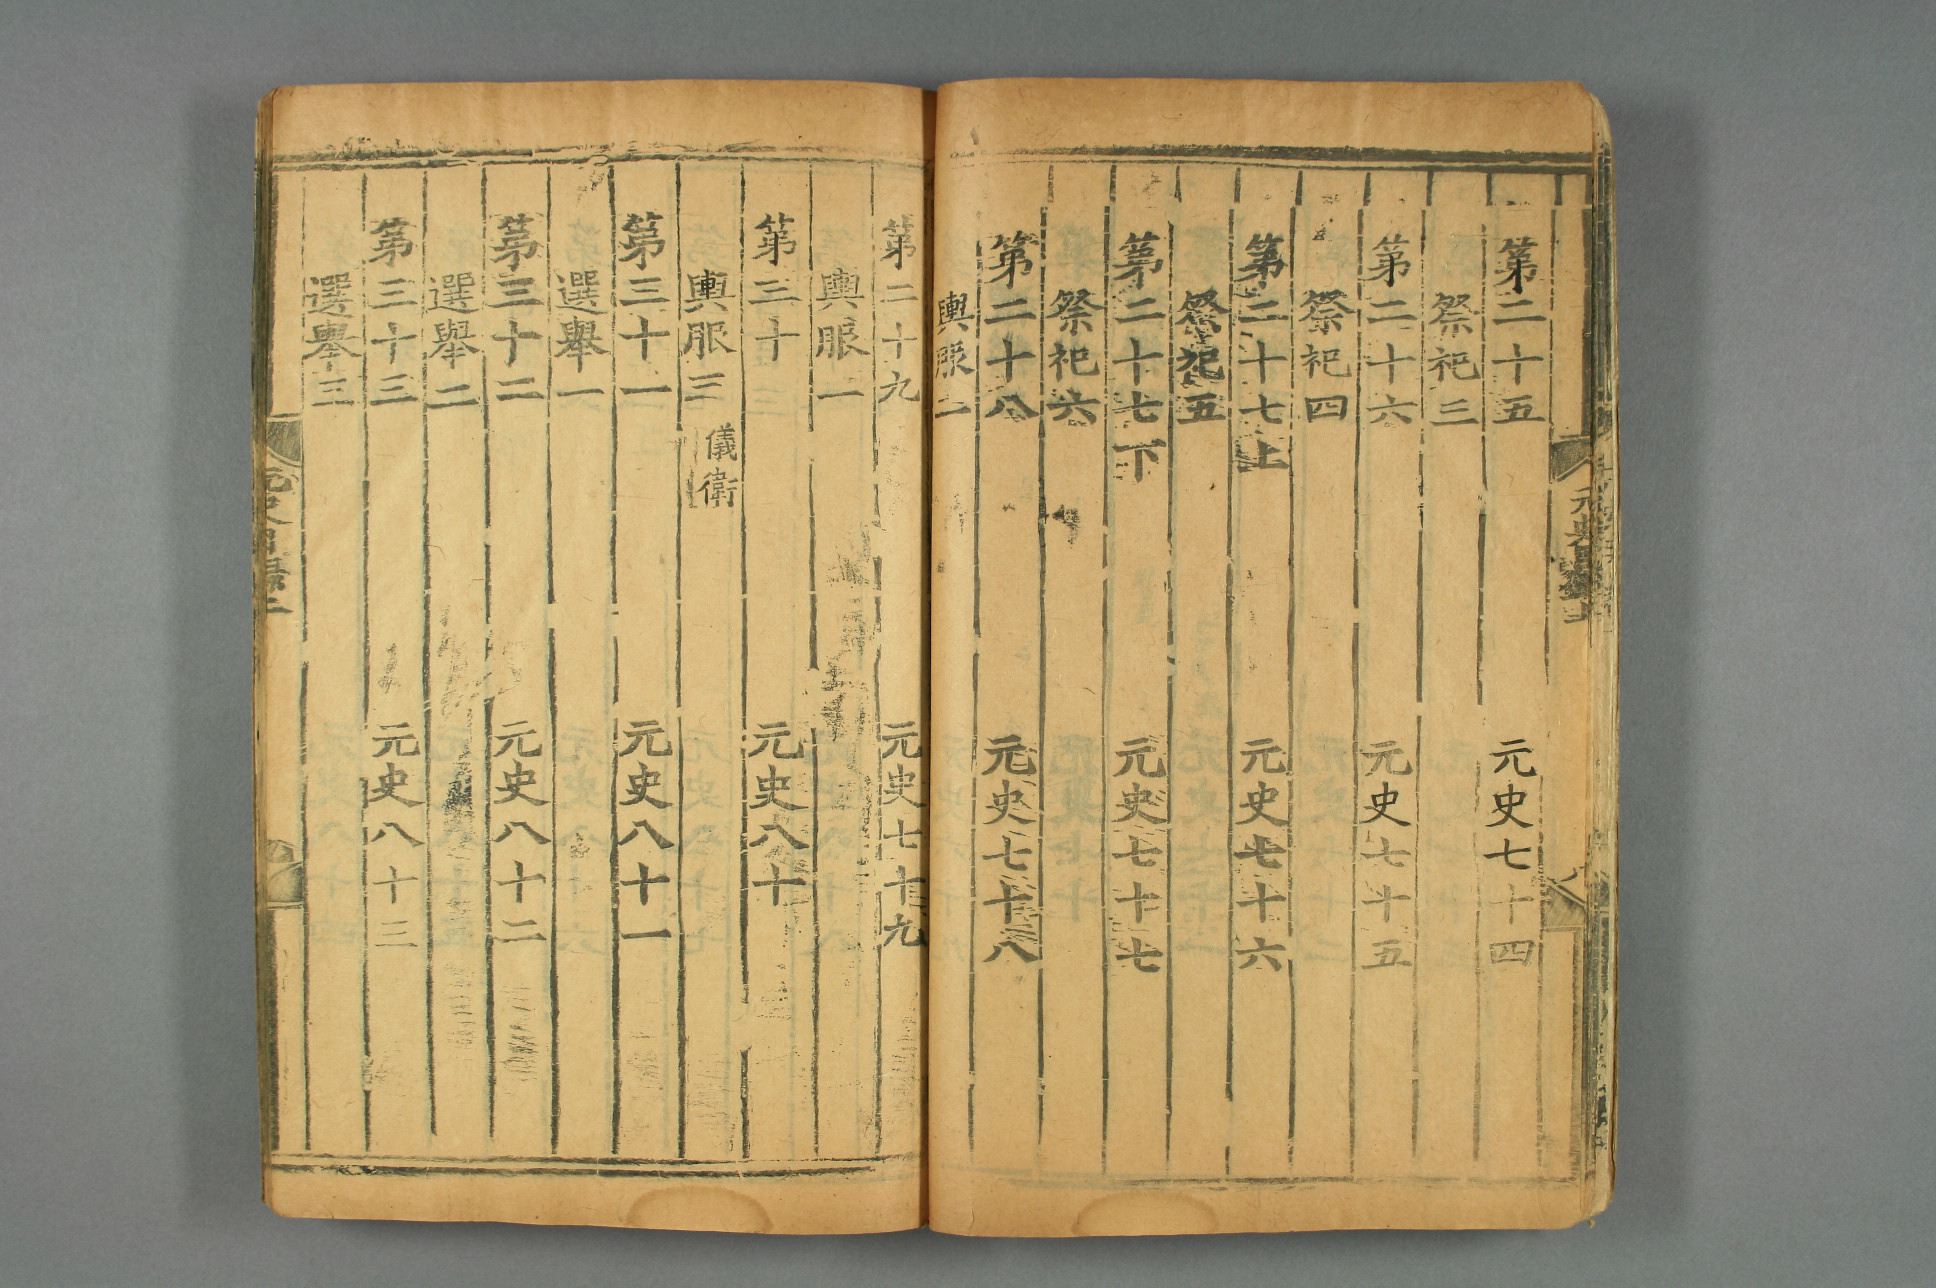 第二十五 元史七十四
祭祀三
第二十六 元史七十五
祭祀四
第二十七上 元史七十六
祭祀五
第二十七下 元史七十七
祭祀六
第二十八 元史七十八
輿服一
第二十九 元史七十九
輿服二
第三十 元史八十
輿服三 儀衛
第三十一 元史八十一
選舉一
第三十二 元史八十二
選舉二
第三十三 元史八十三
選舉三